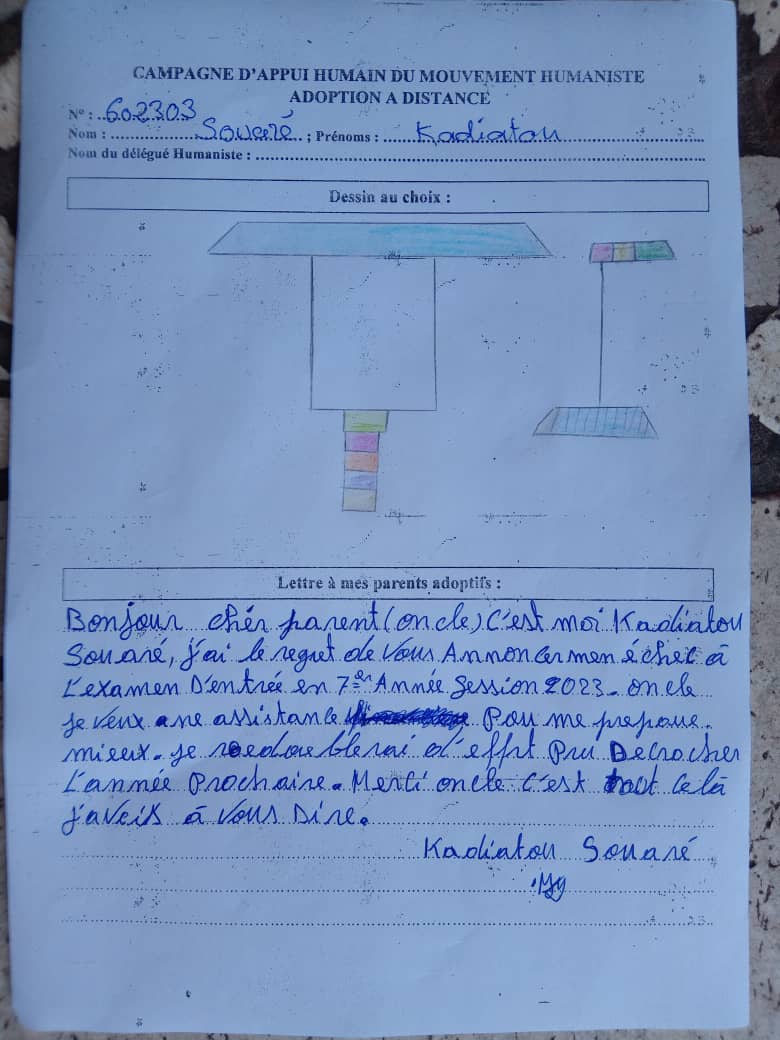 CAMPAGNE D'APPUI HUMAIN DU MOUVEMENT HUMANISTE
ADOPTION A DISTANCE
N° : 602303
Nom : Souaré ; Prénoms : Kadiatou
Nom du délégué Humaniste :
Dessin au choix :
Lettre à mes parents adoptifs :
Bonjour chér parent (oncle) c'est moi Kadiatou
Souaré, j'ai le regret de vous Annoncer mon échec à
L'examen D'entrée en 7è Année Session 2023. oncle
je veux une assistance Pou me prepoue
mieux. je redoublerai d'effrt Pru Decrocher
L'année Prochaire. Merci oncle c'est tout ce là
j'aveis à vous Dire.
Kadiatou Souaré